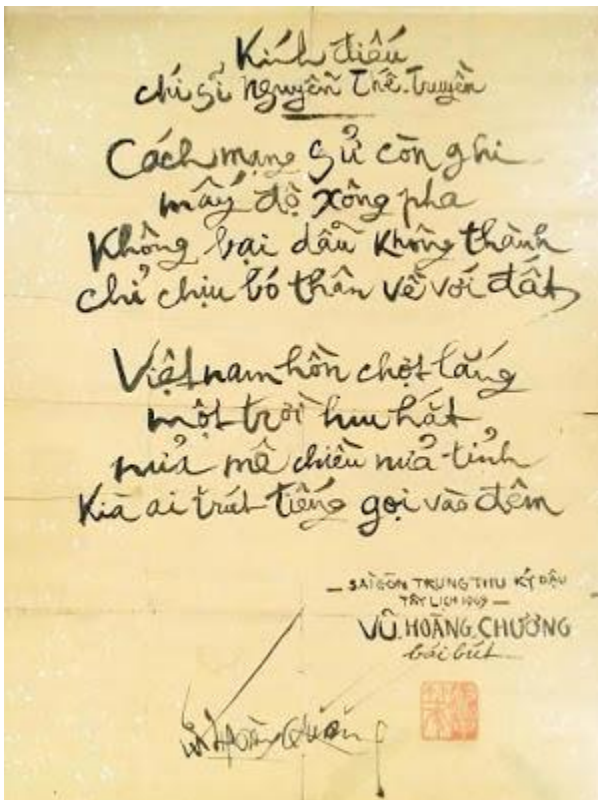 Kính điếu
chí sĩ Nguyễn Thế-Truyền
Cách mạng sử còn ghi
mấy độ xông pha
Không bại dẫu không thành
chỉ chịu bó thân về với đất
Việt nam hồn chợt lắng
một trời hiu hắt
nửa mê chiều nửa tỉnh
Kìa ai trút tiếng gọi vào đêm
— SÀIGÒN TRUNG THU KỶ DẬU
TÂY LỊCH 1969 —
VŨ HOÀNG CHƯƠNG
bái bút